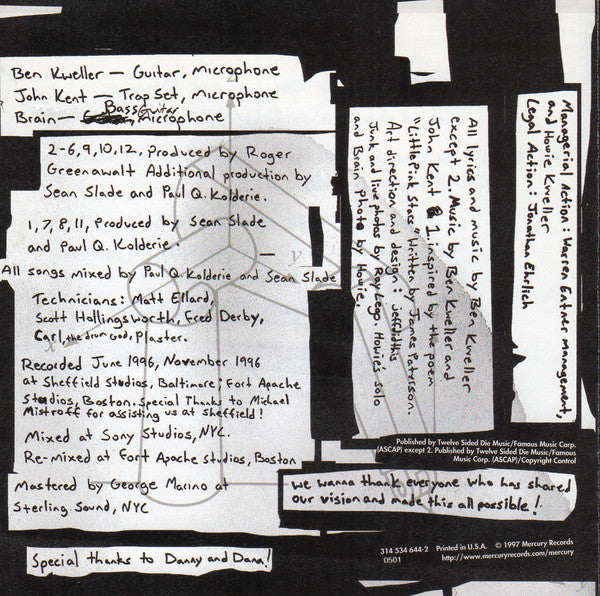 Ben Kweller — Guitar, Microphone
John Kent — Trap Set, Microphone
Brain — Bass Guitar, Microphone
2-6, 9, 10, 12, Produced by Roger
Greenawalt Additional production by
Sean Slade and Paul Q. Kolderie.
1, 7, 8, 11, Produced by Sean Slade
and Paul Q. Kolderie.
All songs mixed by Paul Q. Kolderie and Sean Slade
Technicians: Matt Ellard,
Scott Hollingsworth, Fred Derby,
Carl, the drum God, Plaster.
Recorded June 1996, November 1996
at Sheffield Studios, Baltimore; Fort Apache
Studios, Boston. Special Thanks to Michael
Mistroff for assisting us at Sheffield!
Mixed at Sony Studios, NYC.
Re-mixed at Fort Apache Studios, Boston
Mastered by George Marino at
Sterling Sound, NYC
Special thanks to Danny and Dana!
All lyrics and music by Ben Kweller
except 2. Music by Ben Kweller and
John Kent & 1 inspired by the poem
"Little Pink Stars" written by James Paterson.
Art direction and design: jeffdidthis
Junk and live photos by Ray Lego. Howie's solo
and Brain photo by Howie.
Managerial Action: Warren Entner Management,
and Howie Kweller
Legal Action: Jonathan Ehrlich
Published by Twelve Sided Die Music/Famous Music Corp.
(ASCAP) except 2. Published by Twelve Sided Die Music/Famous
Music Corp. (ASCAP)/Copyright Control
we wanna thank everyone who has shared
our vision and made this all possible!
314 534 644-2 Printed in U.S.A. © 1997 Mercury Records
0501 http://www.mercuryrecords.com/mercury
z
y
x